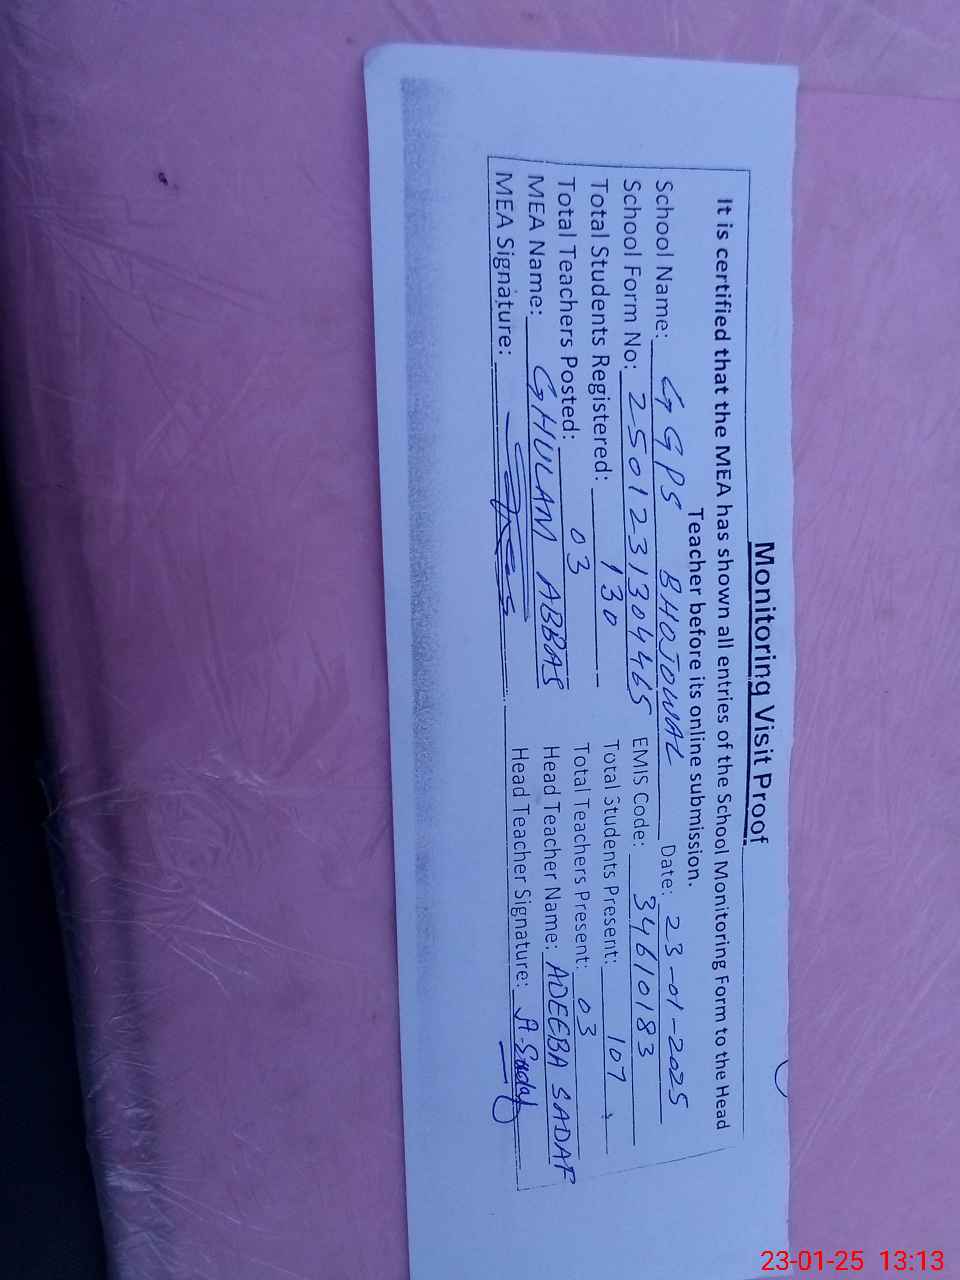 Monitoring Visit Proof
It is certified that the MEA has shown all entries of the School Monitoring Form to the Head
Teacher before its online submission.
School Name: GGPS BHOJOWAL Date: 23-01-2025
School Form No: 2501231304465 EMIS Code: 34610183
Total Students Registered: 130 Total Students Present: 107
Total Teachers Posted: 03 Total Teachers Present: 03
MEA Name: GHULAM ABBAS Head Teacher Name: ADEEBA SADAF
MEA Signature: Head Teacher Signature: A-Sadaf
23-01-25 13:13